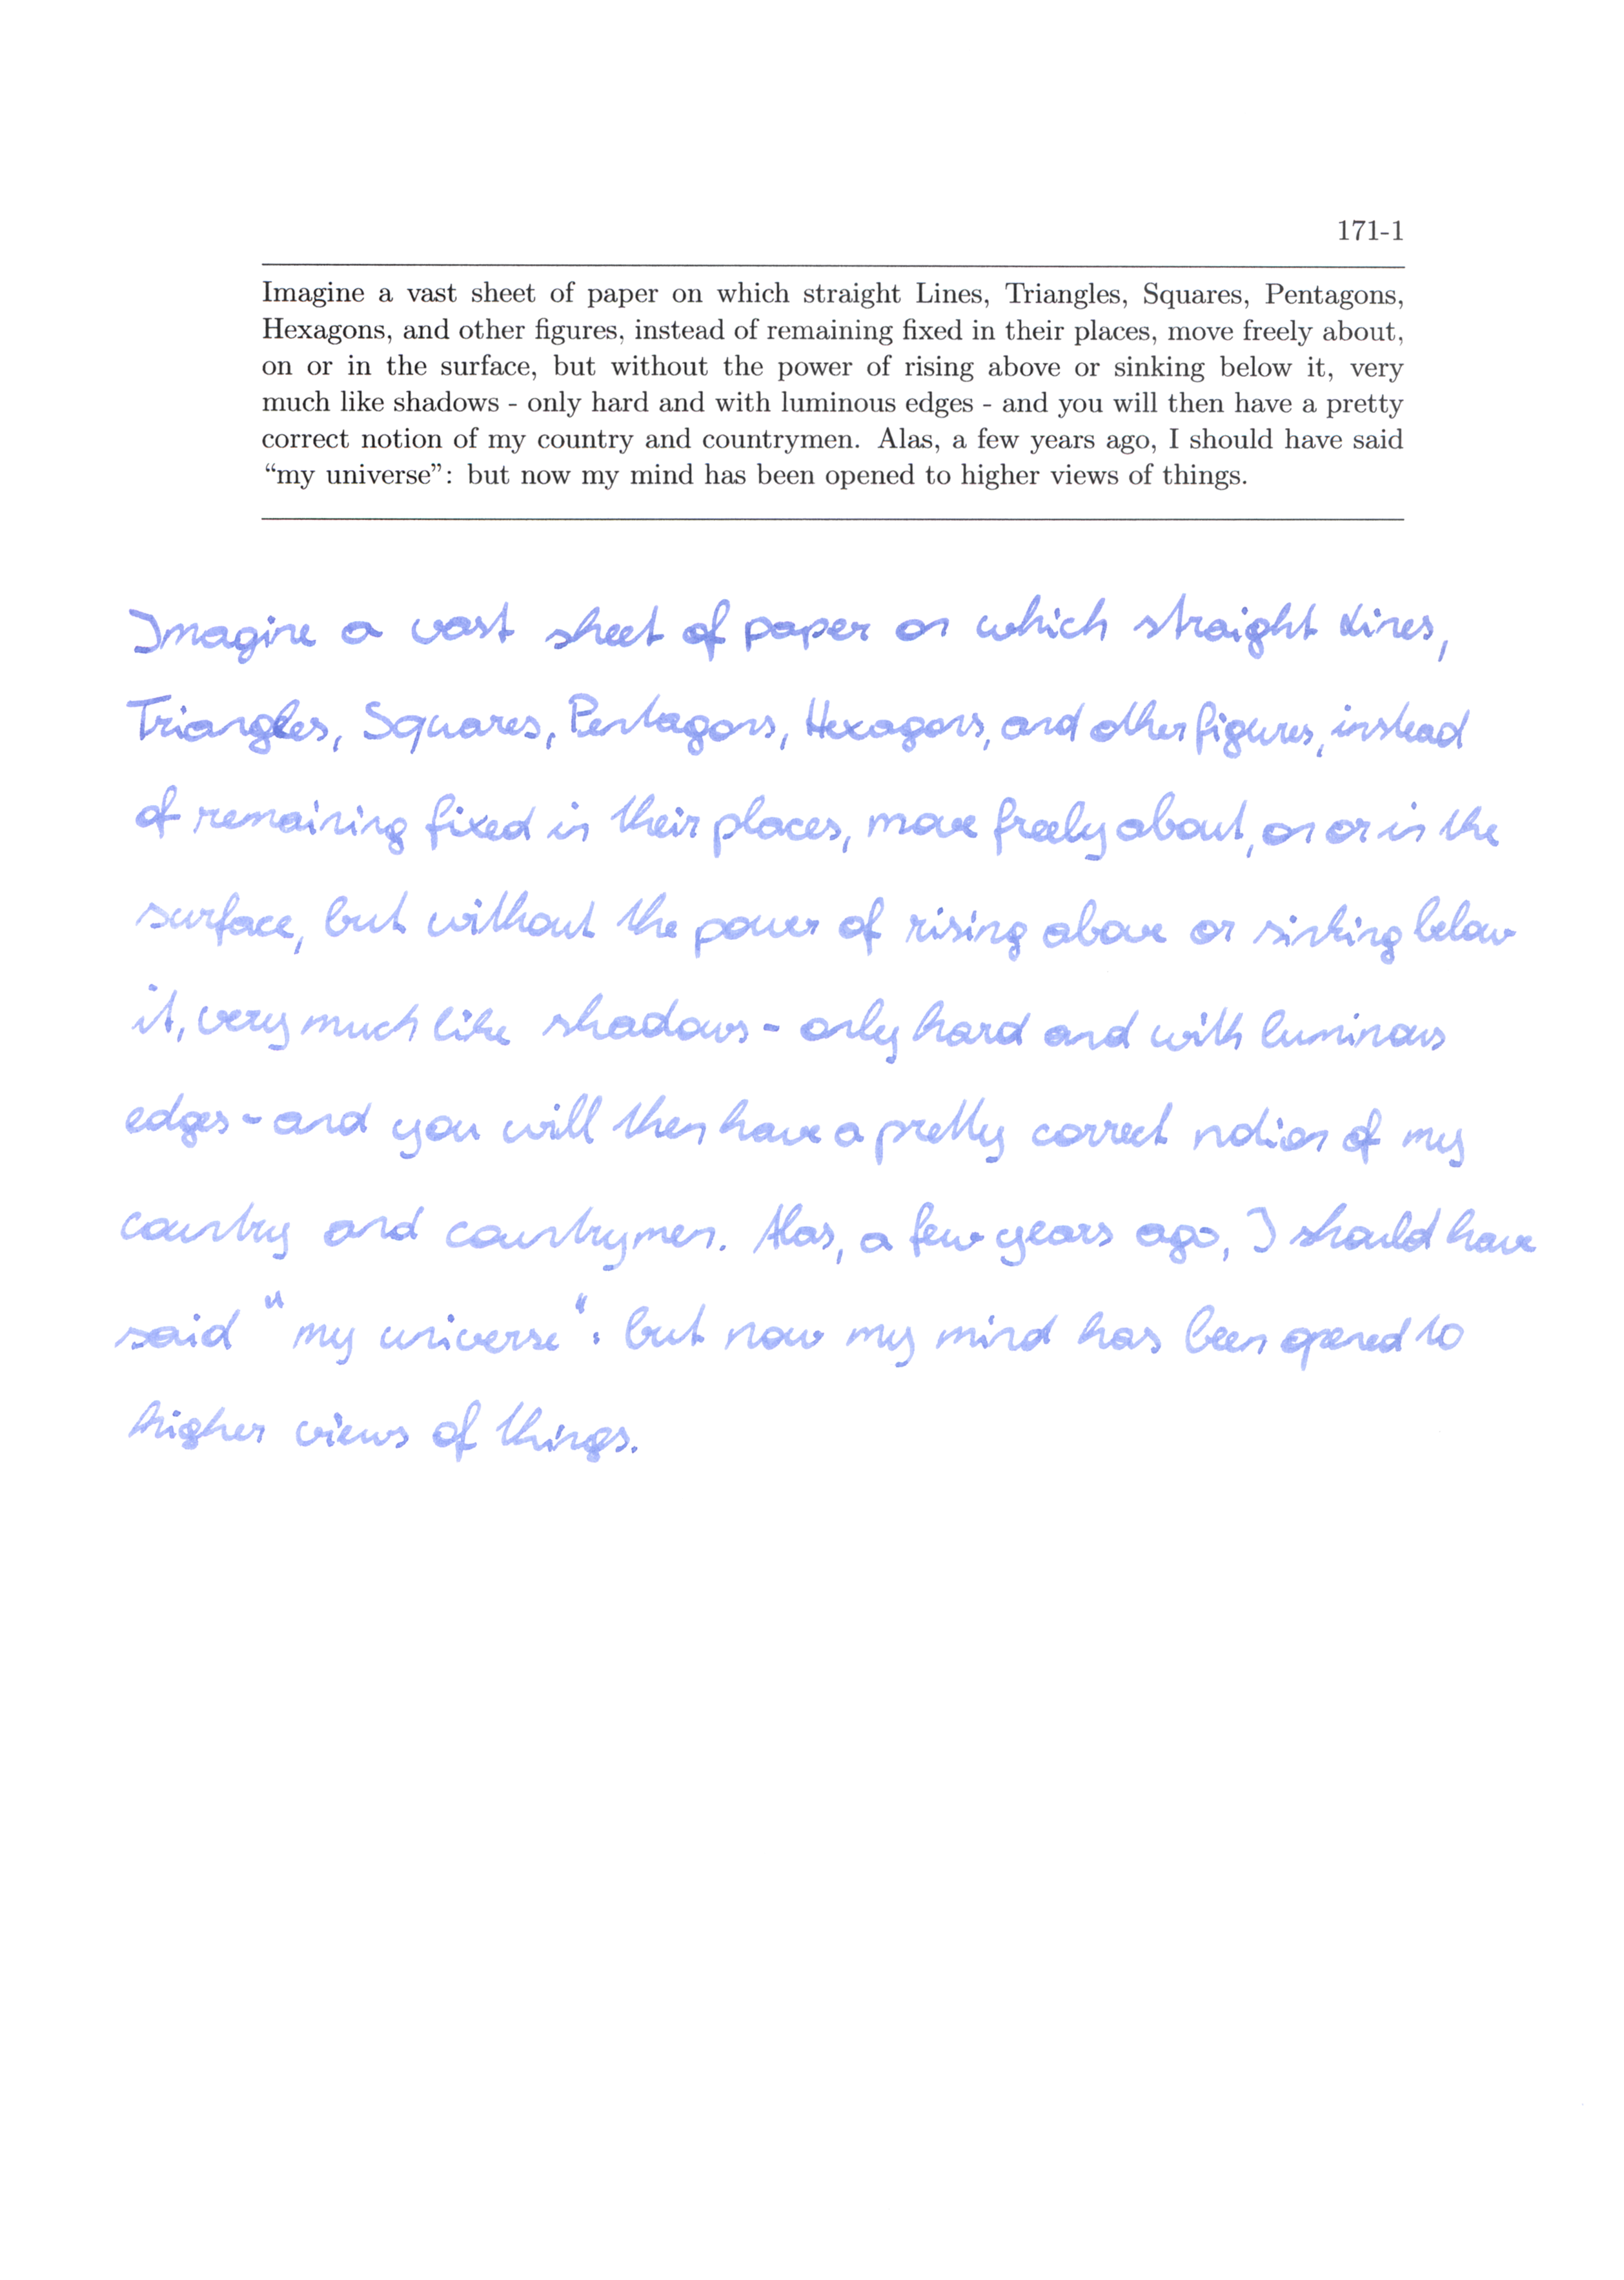 171-1
Imagine a vast sheet of paper on which straight Lines, Triangles, Squares, Pentagons,
Hexagons, and other figures, instead of remaining fixed in their places, move freely about,
on or in the surface, but without the power of rising above or sinking below it, very
much like shadows - only hard and with luminous edges - and you will then have a pretty
correct notion of my country and countrymen. Alas, a few years ago, I should have said
“my universe”: but now my mind has been opened to higher views of things.
Imagine a vast sheet of paper on which straight Lines,
Triangles, Squares, Pentagons, Hexagons, and other figures, instead
of remaining fixed in their places, move freely about, on or in the
surface, but without the power of rising above or sinking below
it, very much like shadows - only hard and with luminous
edges - and you will then have a pretty correct notion of my
country and countrymen. Alas, a few years ago, I should have
said "my universe": but now my mind has been opened to
higher views of things.